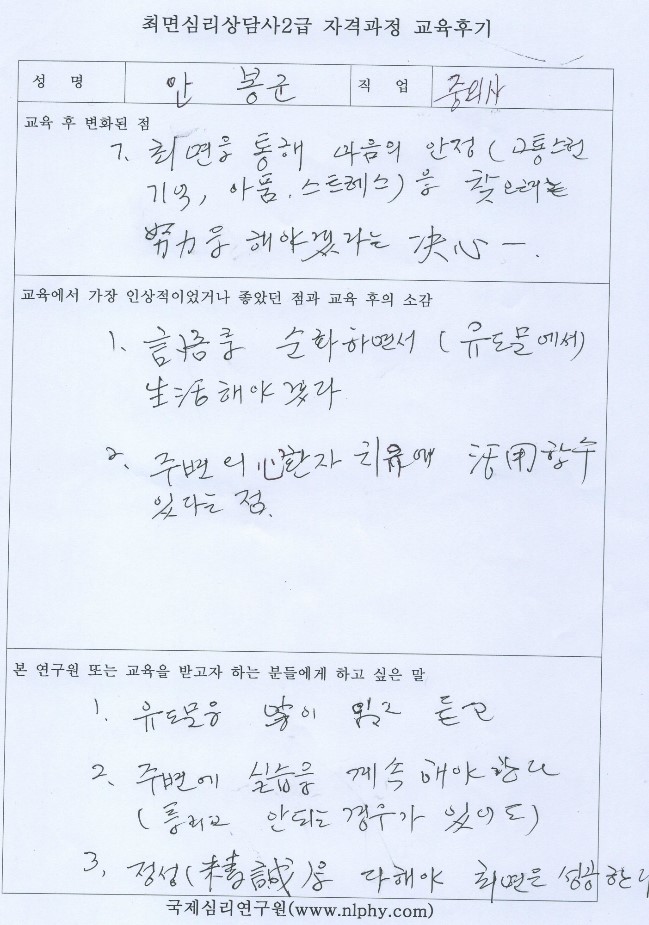 최면심리상담사2급 자격과정 교육후기
성 명 안 봉균 직 업 중의사
교육 후 변화된 점
1. 최면을 통해 마음의 안정 (고통스런
기억, 아픔, 스트레스)을
努力을 해야겠다는 決心
교육에서 가장 인상적이었거나 좋았던 점과 교육 후의 소감
1. 순화하면서 (유도문에서)
生活해야 겠다
2. 주변의 心환자 치유에 活用할수
있다는 점.
본 연구원 또는 교육을 받고자 하는 분들에게 하고 싶은 말
1. 유도문을 많이 읽고 듣고
2. 주변에 실습을 계속 해야 한다
(틀리고 안되는 경우가 있어도)
3, 정성(誠)을 다해야 최면은 성공한다
국제심리연구원(www.nlphy.com)